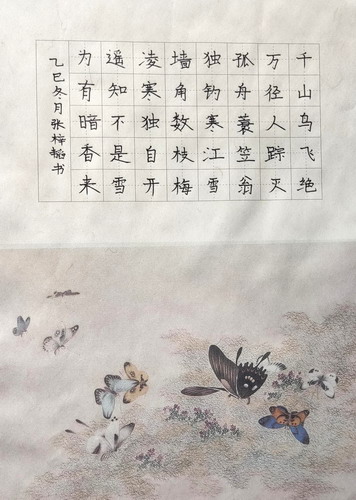 千山鸟飞绝
万径人踪灭
孤舟蓑笠翁
独钓寒江雪
墙角数枝梅
凌寒独自开
遥知不是雪
为有暗香来
乙巳冬月张梓韬书